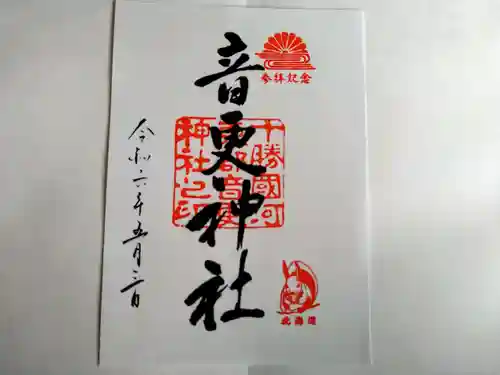 参拝記念
音更神社
十勝國河
東郡音更
神社之印
令和六年五月三日
北海道